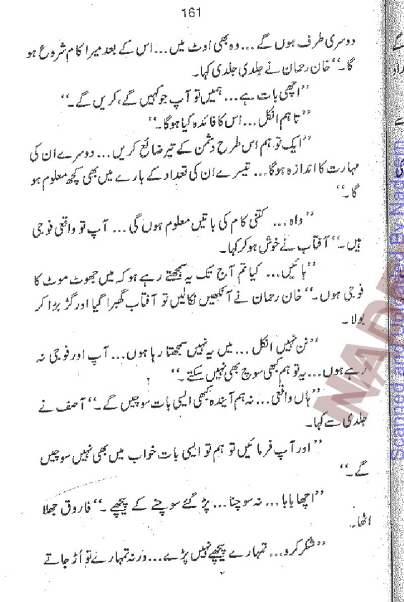 161
دوسری طرف ہوں گے... وہ بھی اوٹ میں... اس کے بعد میرا کام شروع ہو
گا۔“ خان رحمان نے جلدی جلدی کہا۔
”اچھی بات ہے... ہمیں تو آپ جو کہیں گے، کریں گے۔“
”تاہم انکل... اس کا فائدہ کیا ہوگا۔“
”ایک تو ہم اس طرح دشمن کے تیر ضائع کریں... دوسرے ان کی
مہارت کا اندازہ ہوگا... تیسرے ان کی تعداد کے بارے میں بھی کچھ معلوم ہو
گا۔“
”واہ... کتنی کام کی باتیں معلوم ہوں گی... آپ تو واقعی فوجی
ہیں۔“ آفتاب نے خوش ہو کر کہا۔
”ہائیں... کیا تم آج تک یہ سمجھتے رہے ہو کہ میں جھوٹ موٹ کا
فوجی ہوں۔“ خان رحمان نے آنکھیں نکالیں تو آفتاب گھبرا گیا اور گڑبڑا کر
بولا۔
”نن نہیں انکل... میں یہ نہیں سمجھتا رہا ہوں... آپ اور فوجی نہ
رہے ہوں... یہ تو ہم کبھی سوچ بھی نہیں سکتے۔“
”ہاں واقعی... نہ ہم آیندہ کبھی ایسی بات سوچیں گے۔“ آصف نے
جلدی سے کہا۔
”اور آپ فرمائیں تو ہم تو ایسی بات خواب میں بھی نہیں سوچیں
گے۔“
”اچھا بابا... نہ سوچنا... پڑ گئے سوچنے کے پیچھے۔“ فاروق جھلا
اٹھا۔
”شکر کرو... تمہارے پیچھے نہیں پڑے... ورنہ تمہارے تو اُڑ جاتے
Scanned and Uploaded By Nadeem